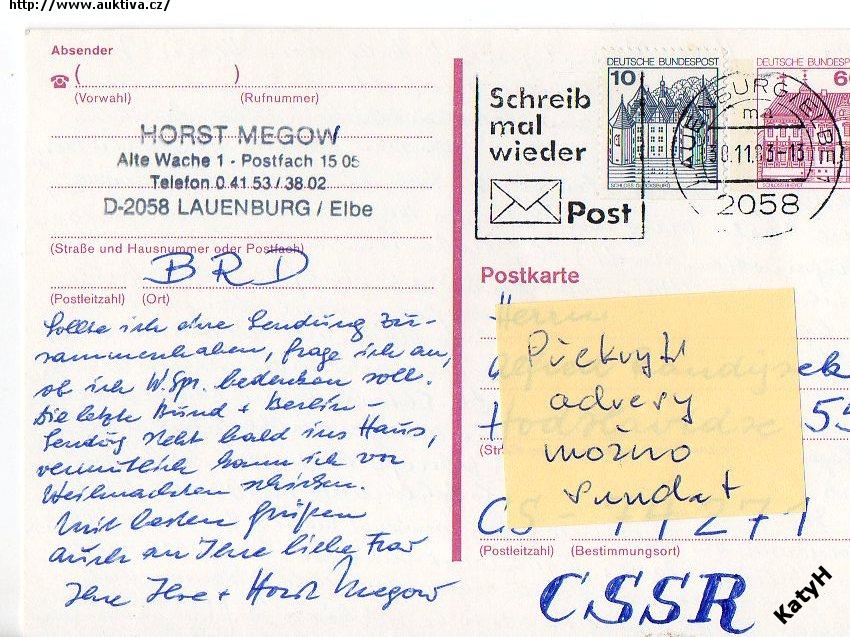 http://www.auktiva.cz/
Absender
( )
(Vorwahl) (Rufnummer)
HORST MEGOW
Alte Wache 1 - Postfach 15 05
Telefon 0 41 53 / 38 02
D-2058 LAUENBURG / Elbe
(Straße und Hausnummer oder Postfach)
BRD
(Postleitzahl) (Ort)
Sollte ich eine Sendung zu-
sammenhaben, frage ich an,
ob ich W.Spr. bedenken soll.
Die letzte Bund + Berlin-
Sendung steht bald ins Haus,
vermutlich kann ich vor
Weihnachten schicken.
Mit besten Grüßen
auch an Ihre liebe Frau
Ihre + Horst Megow
Schreib
mal
wieder
Post
DEUTSCHE BUNDESPOST
10
SCHLOSS GLÜCKSBURG
DEUTSCHE BUNDESPOST
60
SCHLOSS RHEYDT
LAUENBURG, ELBE 1
ma
30.11.83-13
2058
Postkarte
Herrn
55
(Str
Překrytí
adresy
možno
sundat
CS - 74271
(Postleitzahl) (Bestimmungsort)
CSSR
KatyH